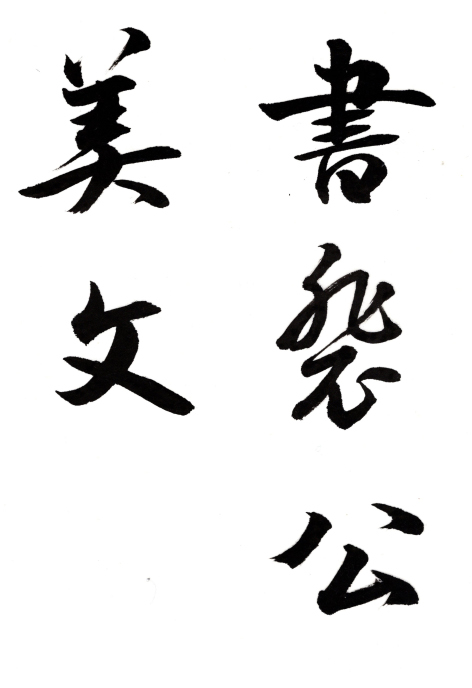 書裴公
美文